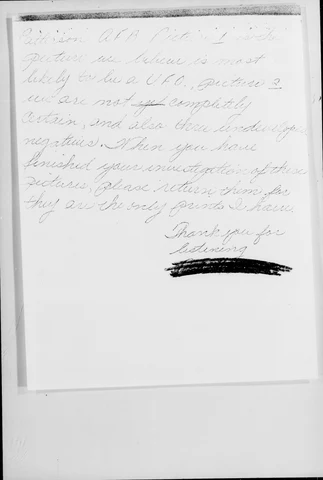 A.F.B. Pict. 1 is the
picture we believe is most
likely to be a U.F.O., picture 2
we are not completly
certain, and also three undeveloped
negatives. When you have
finished your investigation of these
pictures, please return them for
they are the only prints I have
Thank you for
listening